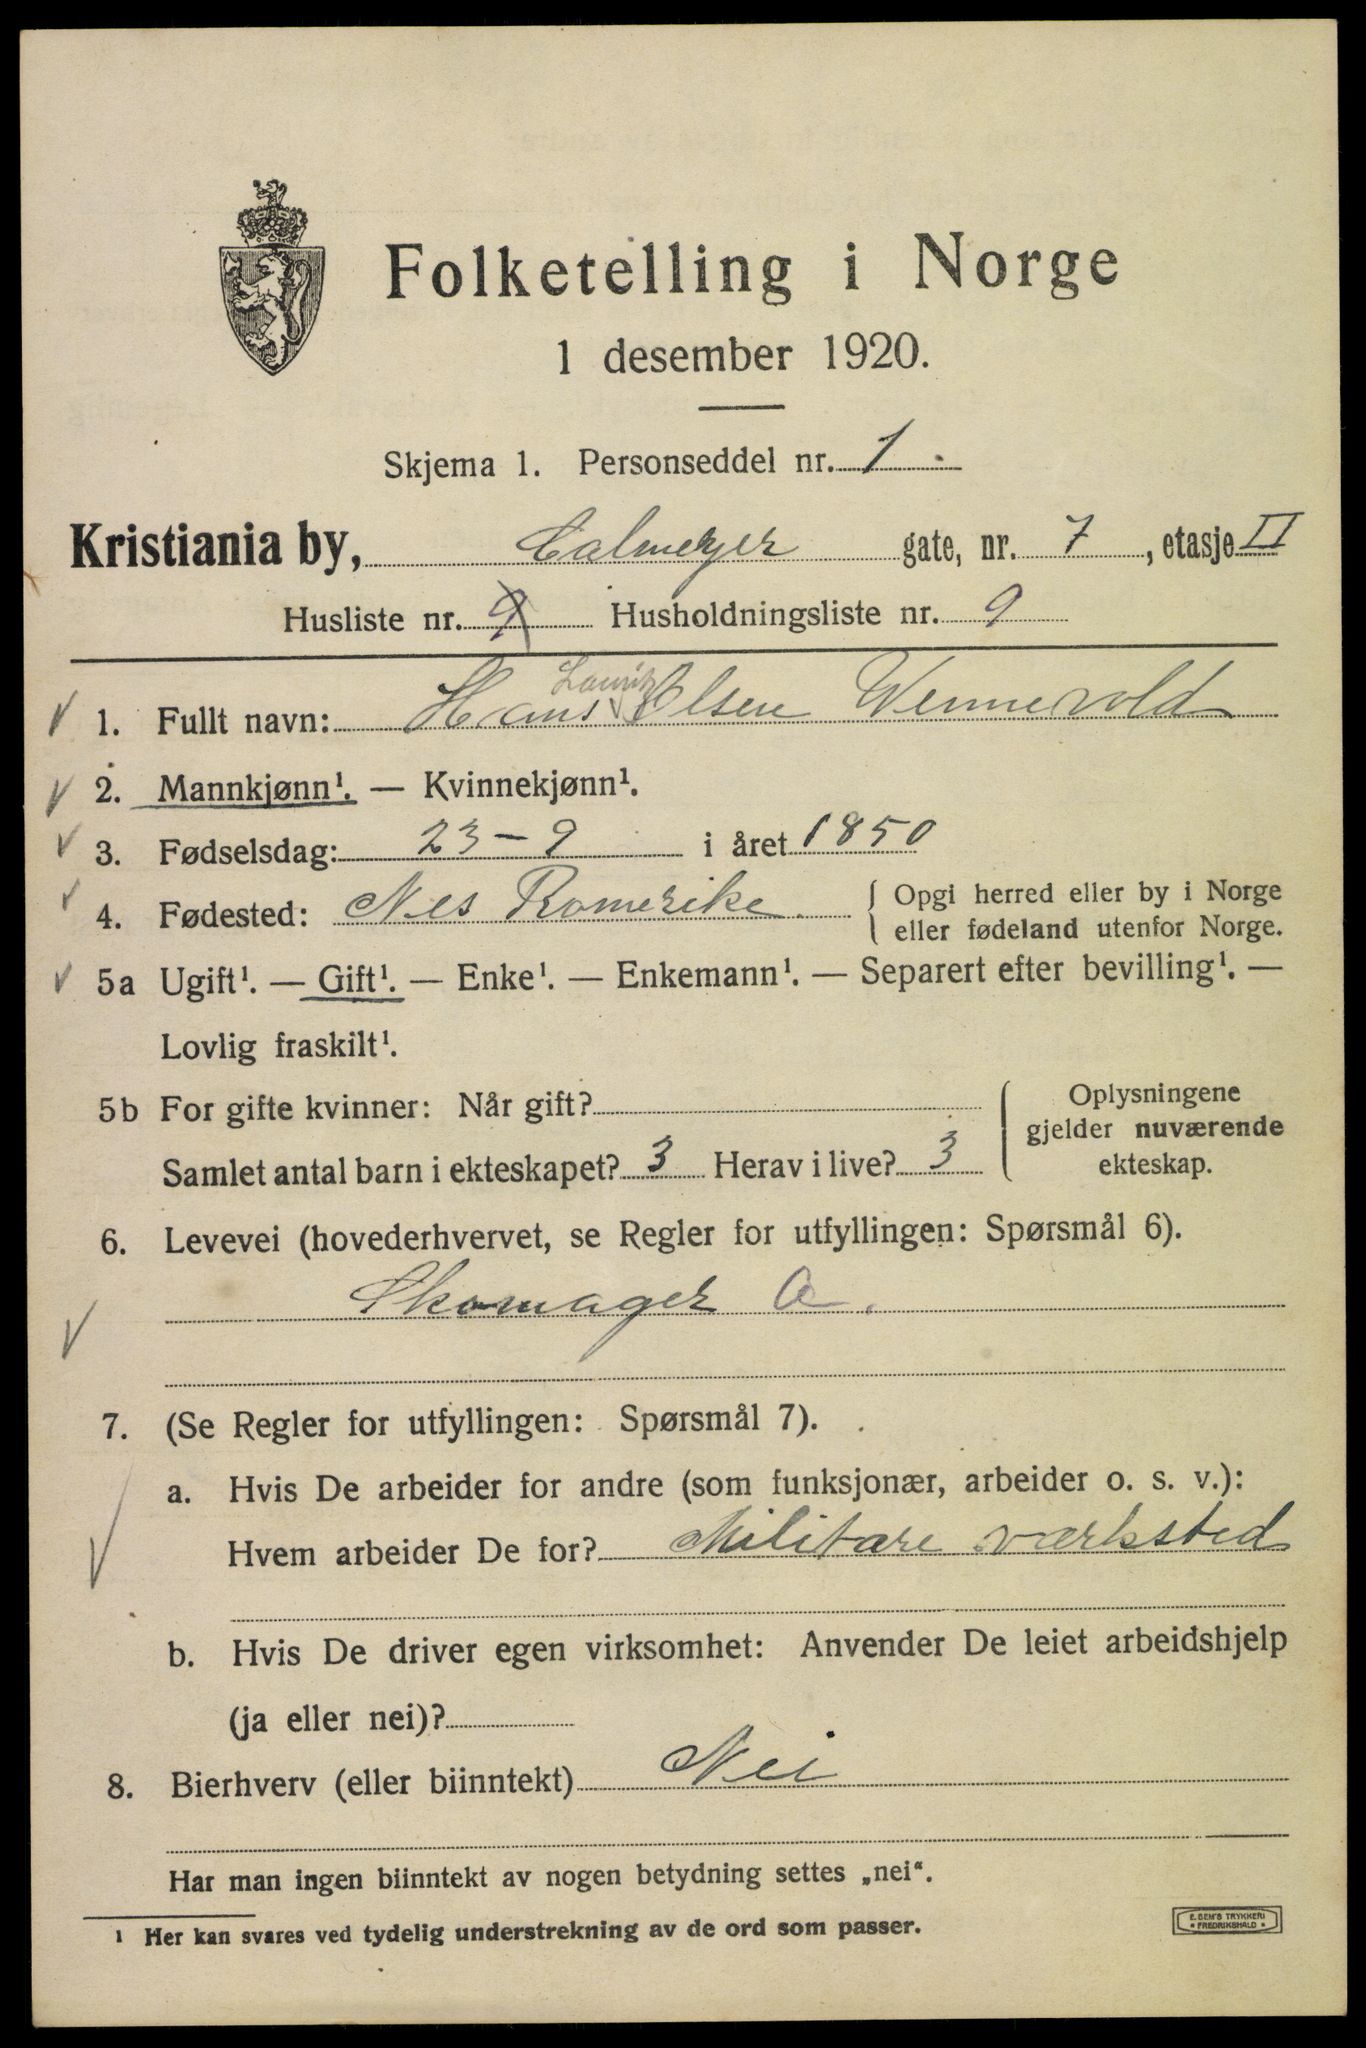 Folketelling i Norge
1 desember 1920.
Skjema 1. Personseddel nr. 1.
Kristiania by, Calmeyer gate, nr. 7, etasje II
Husliste nr. 9 Husholdningsliste nr. 9
Lauritz
1. Fullt navn: Hans Olsen Wennevold
2. Mannkjønn¹. — Kvinnekjønn¹.
3. Fødselsdag: 23-9 i året 1850
4. Fødested: Nes Romerike. { Opgi herred eller by i Norge
eller fødeland utenfor Norge.
5a Ugift¹. — Gift¹. — Enke¹. — Enkemann¹. — Separert efter bevilling¹. —
Lovlig fraskilt¹.
5b For gifte kvinner: Når gift?
Samlet antal barn i ekteskapet? 3 Herav i live? 3
Oplysningene
gjelder nuværende
ekteskap.
6. Levevei (hovederhvervet, se Regler for utfyllingen: Spørsmål 6).
Skomager a.
7. (Se Regler for utfyllingen: Spørsmål 7).
a. Hvis De arbeider for andre (som funksjonær, arbeider o. s. v.):
Hvem arbeider De for? Militære værksted
b. Hvis De driver egen virksomhet: Anvender De leiet arbeidshjelp
(ja eller nei)?
8. Bierhverv (eller biinntekt) Nei
Har man ingen biinntekt av nogen betydning settes „nei“.
¹ Her kan svares ved tydelig understrekning av de ord som passer.
E. SEM'S TRYKKERI
* FREDRIKSHALD *